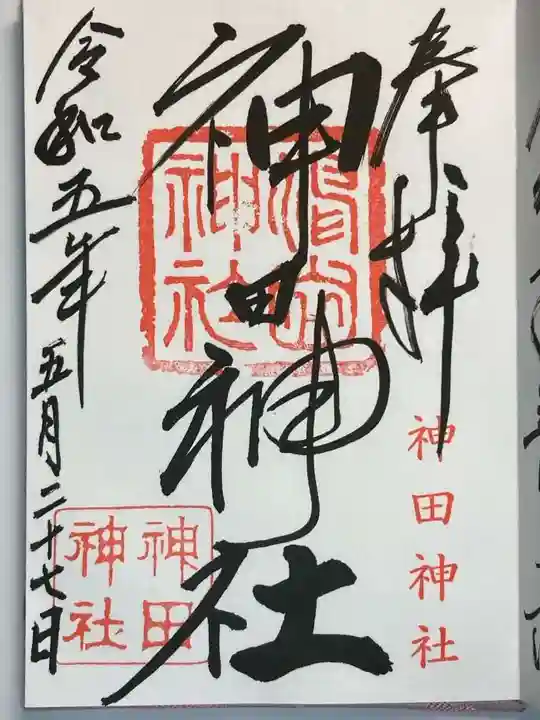 奉拝
神田神社
神田神社
令和五年五月二十七日
神田
神社
神社